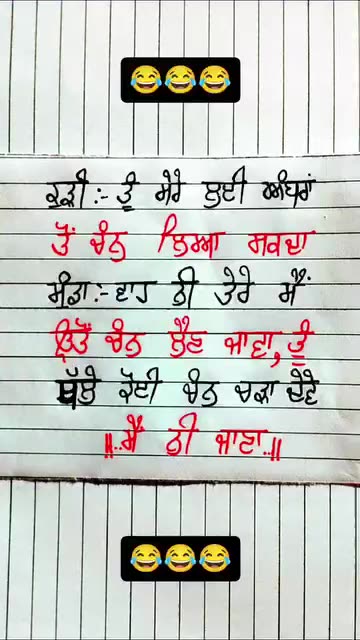 😂😂😂
ਕੁੜੀ :- ਤੂੰ ਮੇਰੇ ਲਈ ਅੰਬਰਾਂ
ਤੋਂ ਚੰਨ ਲਿਆ ਸਕਦਾ
ਮੁੰਡਾ:- ਵਾਹ ਨੀ ਤੇਰੇ ਮੈਂ
ਉਤੋਂ ਚੰਨ ਲੈਣ ਜਾਵਾ, ਤੂੰ
ਪੱਲੇ ਕੋਈ ਚੰਨ ਚੜਾ ਦੇਵੇ
||..ਮੈਂ ਨੀ ਜਾਣਾ..||
😂😂😂